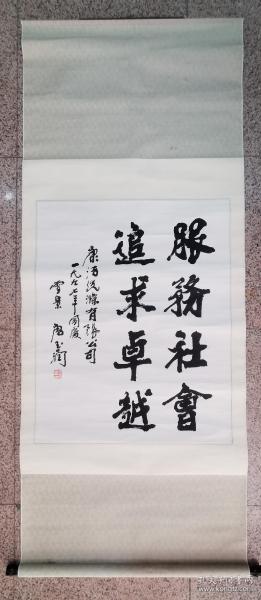 服務社會
追求卓越
康洁洗滌有限公司
一九九七年國慶
雪景